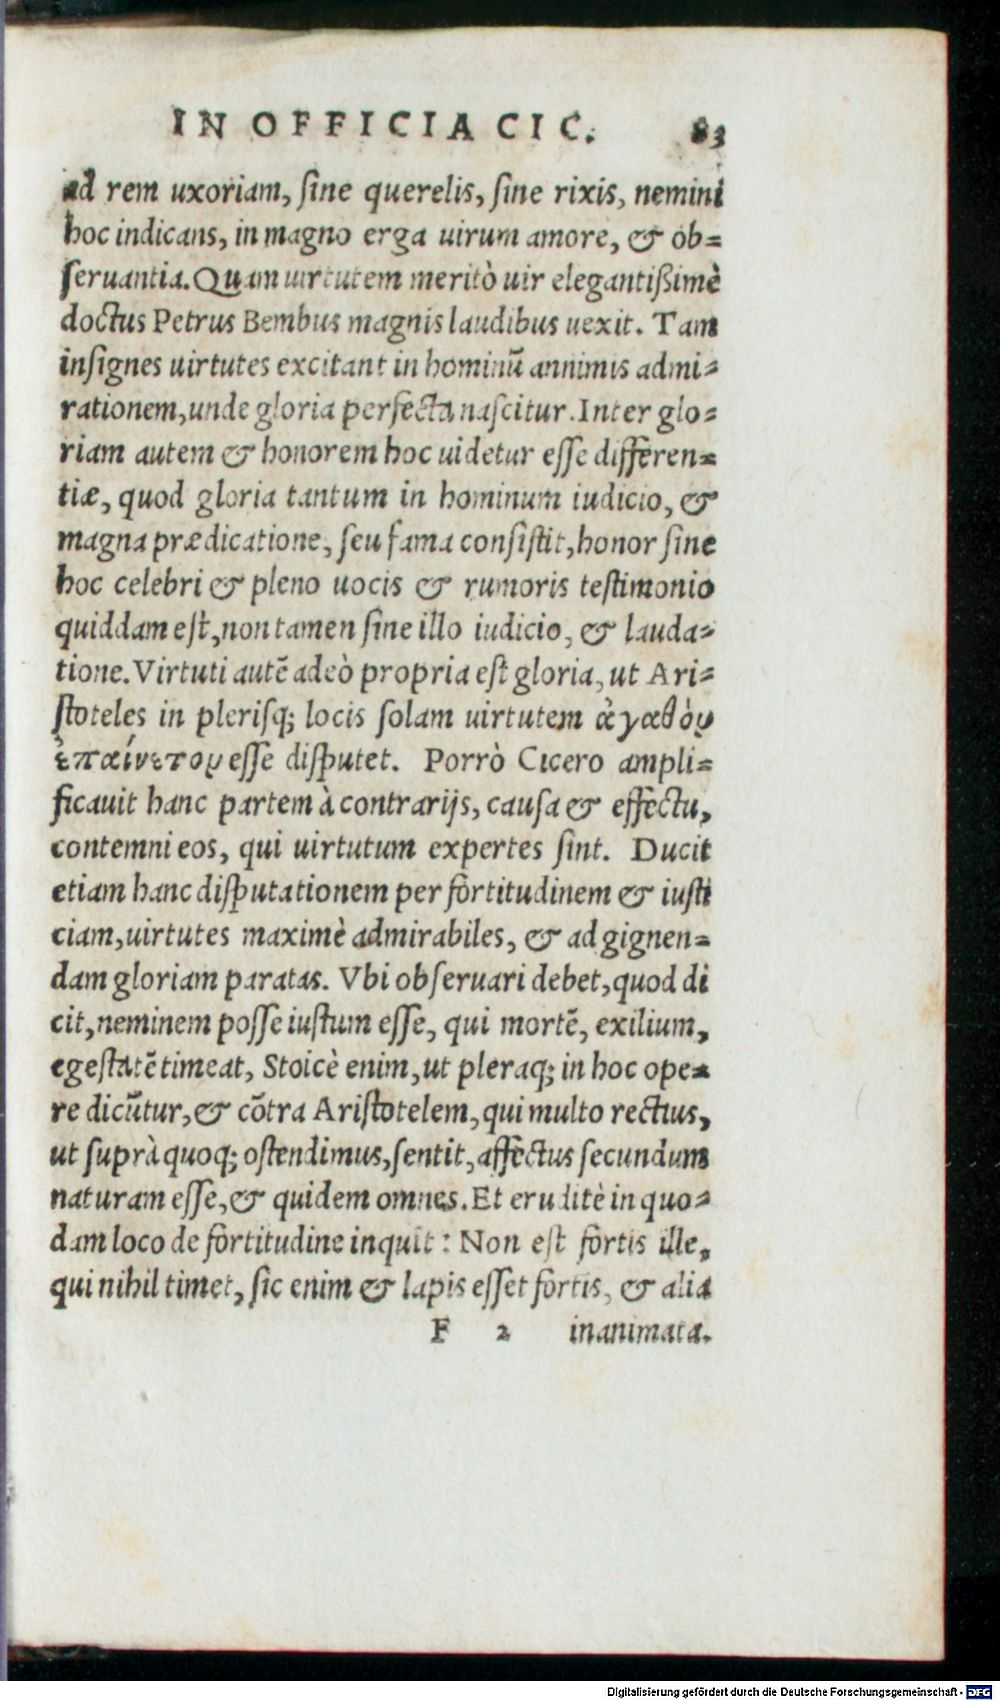 IN OFFICIA CIC. 83
ad rem uxoriam, ſine querelis, ſine rixis, nemini
hoc indicans, in magno erga uirum amore, & ob=
ſeruantia. Quam uirtutem meritò uir elegantißimè
doctus Petrus Bembus magnis laudibus uexit. Tam
inſignes uirtutes excitant in hominũ annimis admi=
rationem, unde gloria perfecta naſcitur. Inter glo=
riam autem & honorem hoc uidetur eſſe differen=
tiæ, quod gloria tantum in hominum iudicio, &
magna prædicatione, ſeu fama conſiſtit, honor ſine
hoc celebri & pleno uocis & rumoris teſtimonio
quiddam eſt, non tamen ſine illo iudicio, & lauda=
tione. Virtuti autẽ adeò propria eſt gloria, ut Ari=
ſtoteles in pleriſq; locis ſolam uirtutem ἀγαθὸν
ἐπαίνετον eſſe diſputet. Porrò Cicero ampli=
ficauit hanc partem à contrarijs, cauſa & effectu,
contemni eos, qui uirtutum expertes ſint. Ducit
etiam hanc diſputationem per fortitudinem & iuſti
ciam, uirtutes maximè admirabiles, & ad gignen=
dam gloriam paratas. Vbi obſeruari debet, quod di
cit, neminem poſſe iuſtum eſſe, qui mortẽ, exilium,
egeſtatẽ timeat, Stoicè enim, ut pleraq; in hoc ope=
re dicũtur, & cõtra Ariſtotelem, qui multo rectius,
ut ſuprà quoq; oſtendimus, ſentit, affectus ſecundum
naturam eſſe, & quidem omnes. Et eruditè in quo=
dam loco de fortitudine inquit: Non eſt fortis ille,
qui nihil timet, ſic enim & lapis eſſet fortis, & alia
F 2 inanimata.
Digitalisierung gefördert durch die Deutsche Forschungsgemeinschaft - DFG